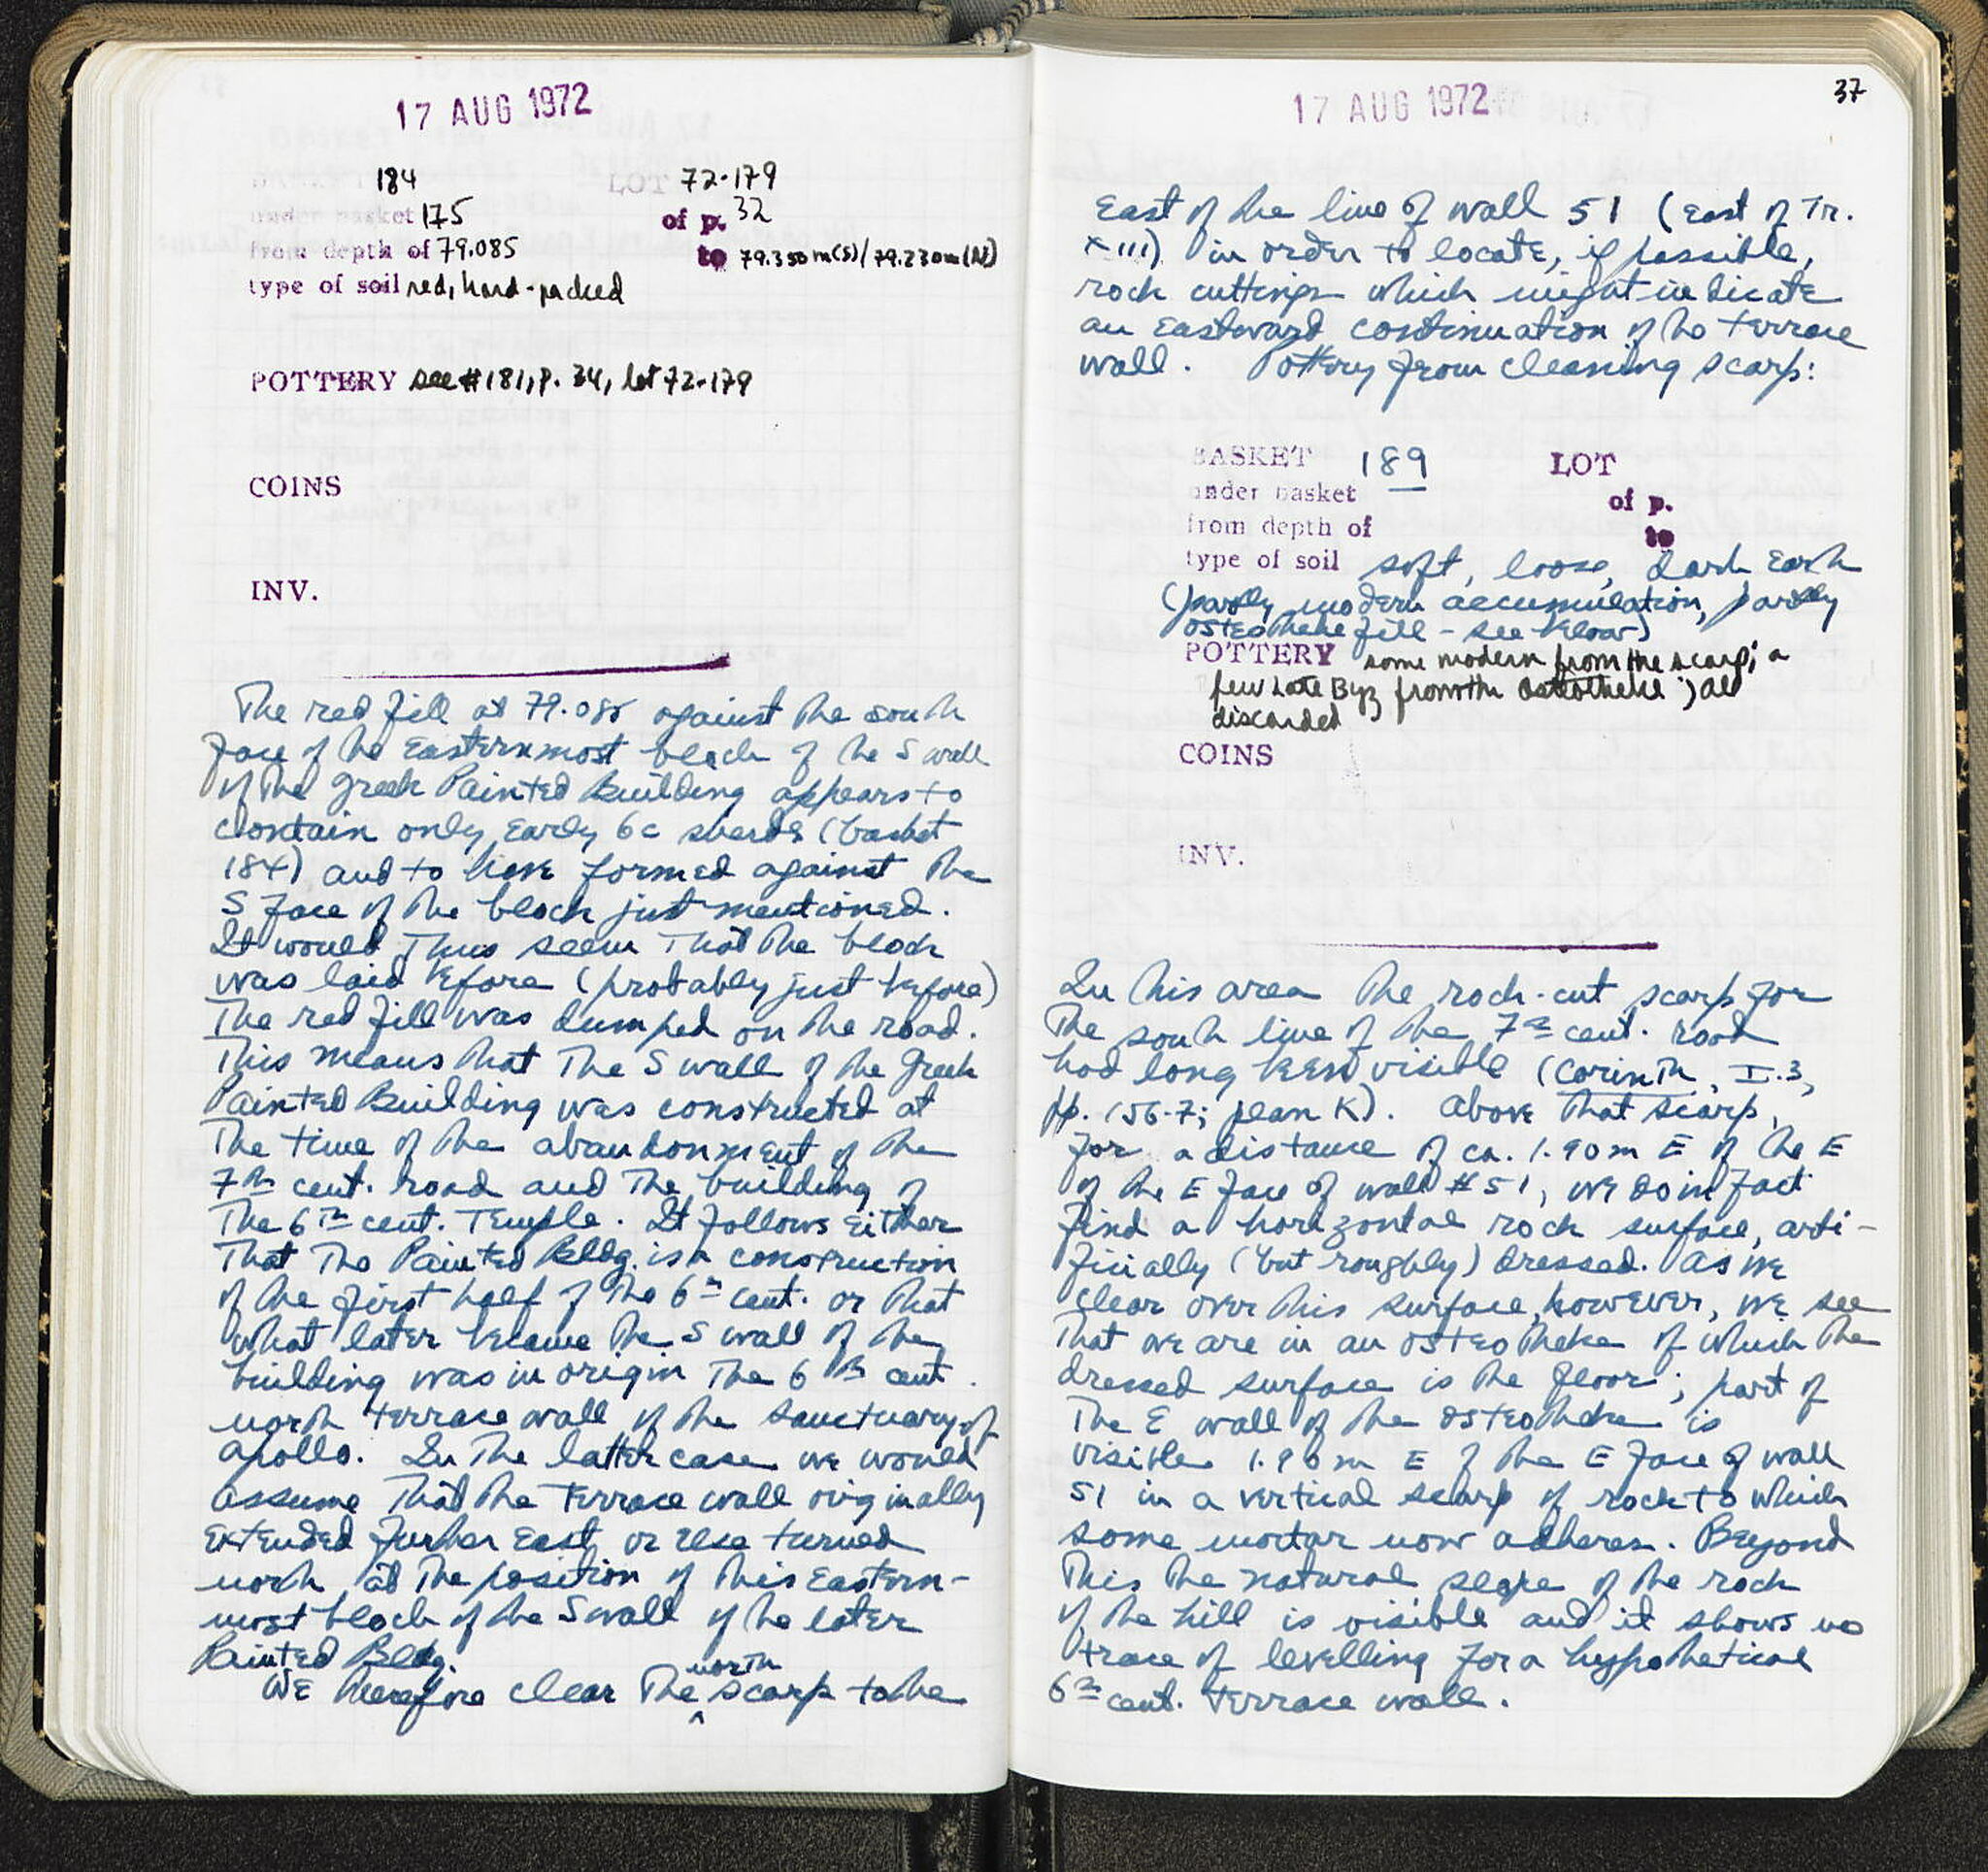 17 AUG 1972
184 LOT 72-179
under basket 175 of p. 32
from depth of 79.085 to 79.350m(S)/79.230m(N)
type of soil red, hard-packed
POTTERY see #181, p. 34, lot 72-179
COINS
INV.
The red fill at 79.085 against the south
face of the Easternmost block of the S wall
of the Greek Painted Building appears to
contain only Early 6c sherds (basket
184) and to have formed against the
S face of the block just mentioned.
It would Thus seem That the block
was laid before (probably just before)
The red fill was dumped on the road.
This means that The S wall of the Greek
Painted Building was constructed at
The time of the abandonment of the
7th cent. road and The building of
The 6th cent. Temple. It follows Either
That The Painted Bldg. is a construction
of the first half of the 6th cent. or that
what later became the S wall of the
building was in origin The 6th cent.
north terrace wall of the sanctuary of
Apollo. In The latter case we would
assume That the Terrace wall originally
Extended further East, or else turned
north at The position of this Eastern-
most block of the S wall of the later
Painted Bldg.
We therefore clear The north scarp to the
37
17 AUG 1972
East of the line of wall 51 (East of Tr.
XIII) in order to locate, if possible,
rock cuttings which might indicate
an Eastward continuation of the terrace
wall. Pottery from cleaning scarp:
BASKET 189 LOT
under basket of p.
from depth of to
type of soil soft, loose, dark Earth
(partly modern accumulation, partly
osteotheke fill - see below)
POTTERY some modern from the scarp; a
few Late Byz from the osteotheke; all
discarded
COINS
INV.
In this area the rock-cut scarp for
The south line of the 7th cent. road
had long been visible (Corinth, I.3,
pp. 156-7; plan K). Above That scarp,
for a distance of ca. 1.90m E of the E
of the E face of wall #51, we do in fact
find a horizontal rock surface, arti-
ficially (but roughly) dressed. As we
clear over this surface, however, we see
That we are in an osteotheke of which the
dressed surface is the floor; part of
The E wall of the osteotheke is
visible 1.90m E of the E face of wall
51 in a vertical scarp of rock to which
some mortar now adheres. Beyond
This the natural slope of the rock
of the hill is visible and it shows no
trace of levelling for a hypothetical
6th cent. terrace wall.